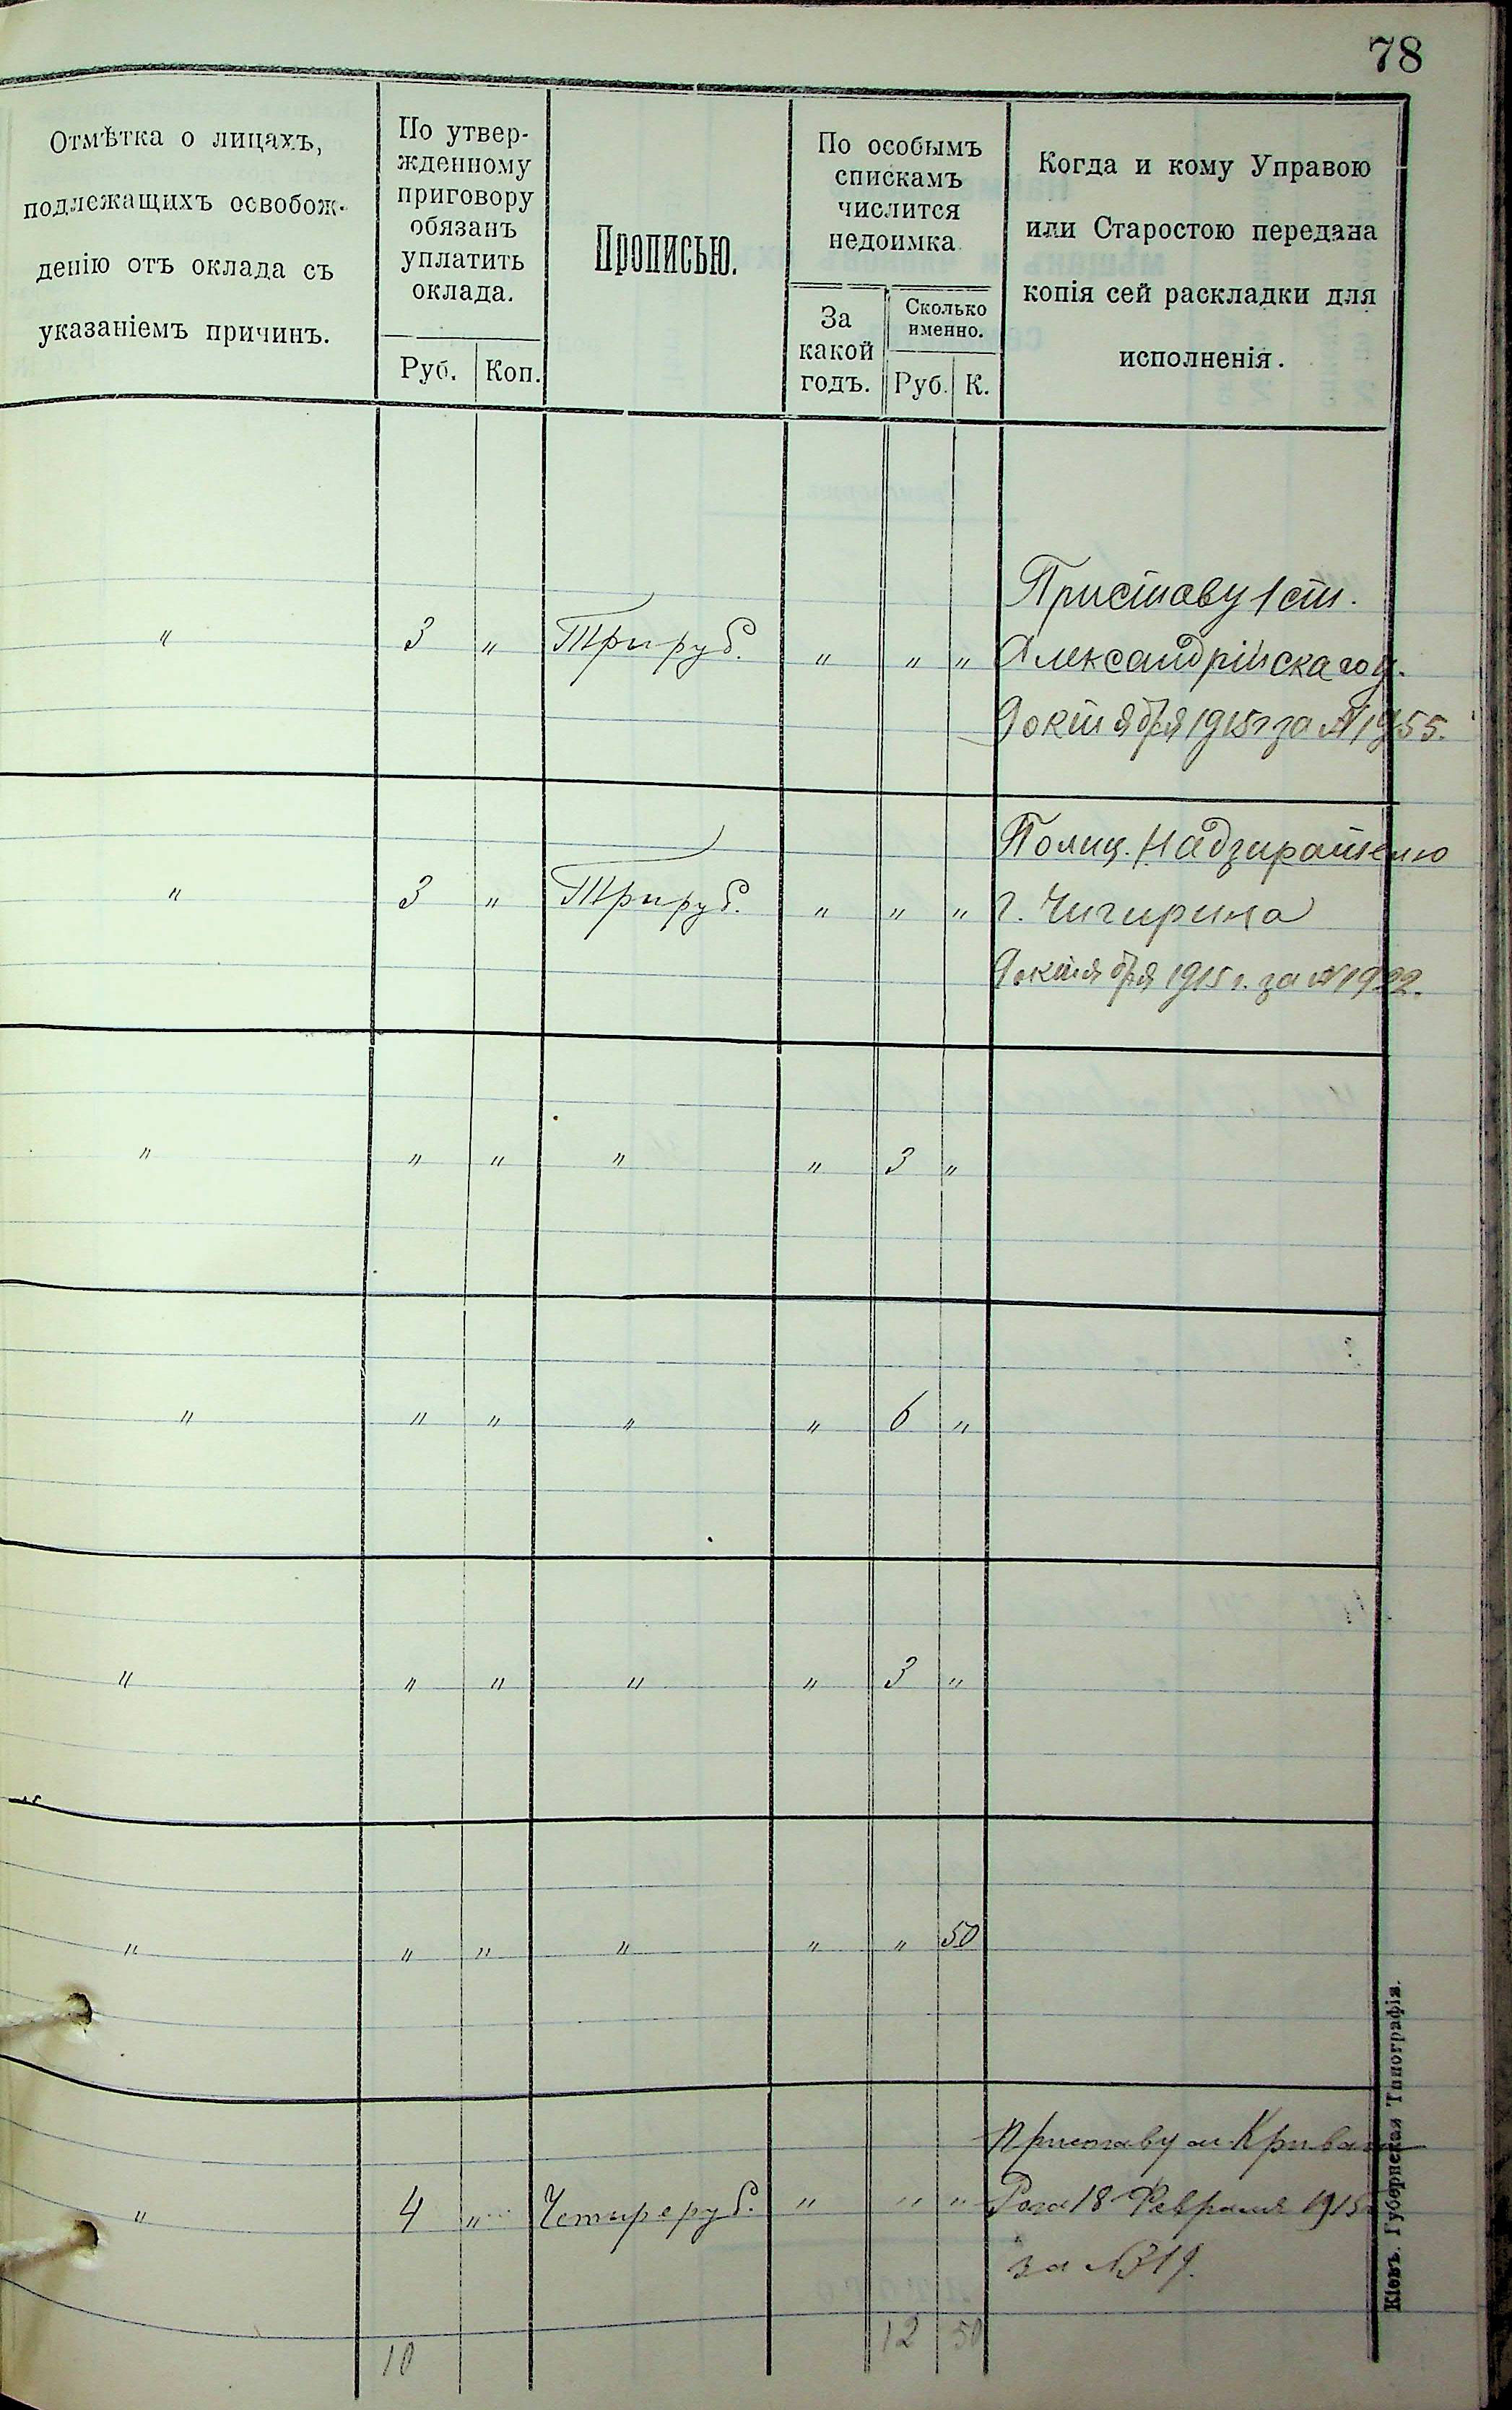 78
Отмѣтка о лицахъ,
подлежащихъ освобож-
денію отъ оклада съ
указаніемъ причинъ.
По утвер-
жденному
приговору
обязанъ
уплатить
оклада.
Руб. Коп.
Прописью.
По особымъ
спискамъ
числится
недоимка
За
какой
годъ.
Сколько
именно.
Руб. К.
Когда и кому Управою
или Старостою передана
копія сей раскладки для
исполненія.
Приставу 1 ст.
" 3 " Три руб. " " " Александрійскаго у.
9 октября 1915 г за № 1955.
Полиц. Надзирателю
" 3 " Три руб. " " " г. Чигирина
9 октября 1915 г. за № 1922.
" " " " " 3 "
" " " " " 6 "
" " " " " 3 "
" " " " " " 50
Приставу м. Кривой
" 4 " Четыре руб. " " " Рога 18 Февраля 1915
за № 319.
10 12 50
Кіевъ. Губернская Типографія.